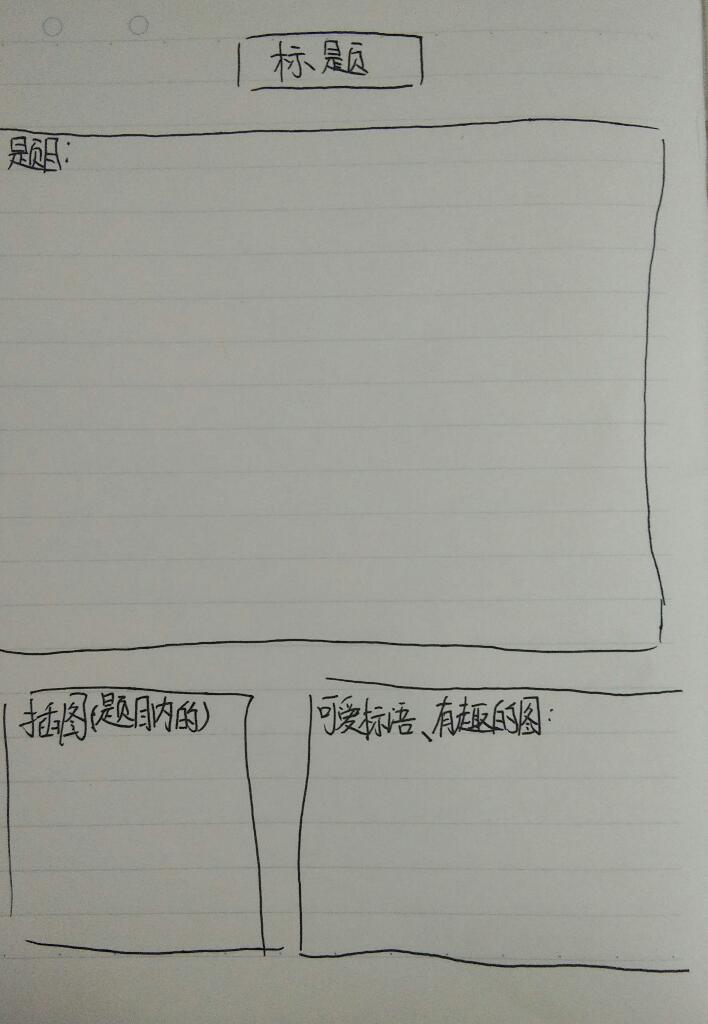 标题
题目:
插图(题目内的)
可爱标语、有趣的图: